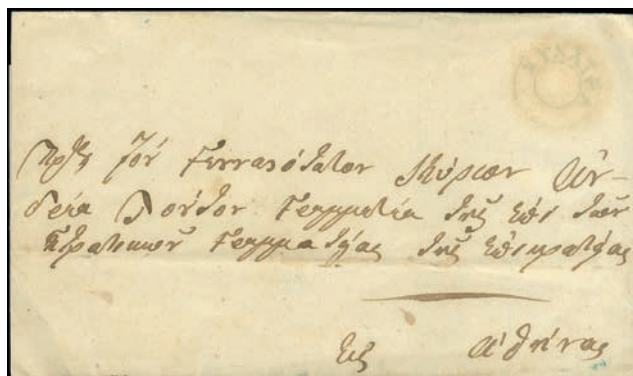 Πρὸς τὸν Γενναιότατον Κύριον Ἀν-
δρέα Γραμματέα τῆς ἐπὶ τῶν
Στρατιωτικῶν Γραμματείας τῆς Ἐπικρατείας
Εἰς Ἀθήνας